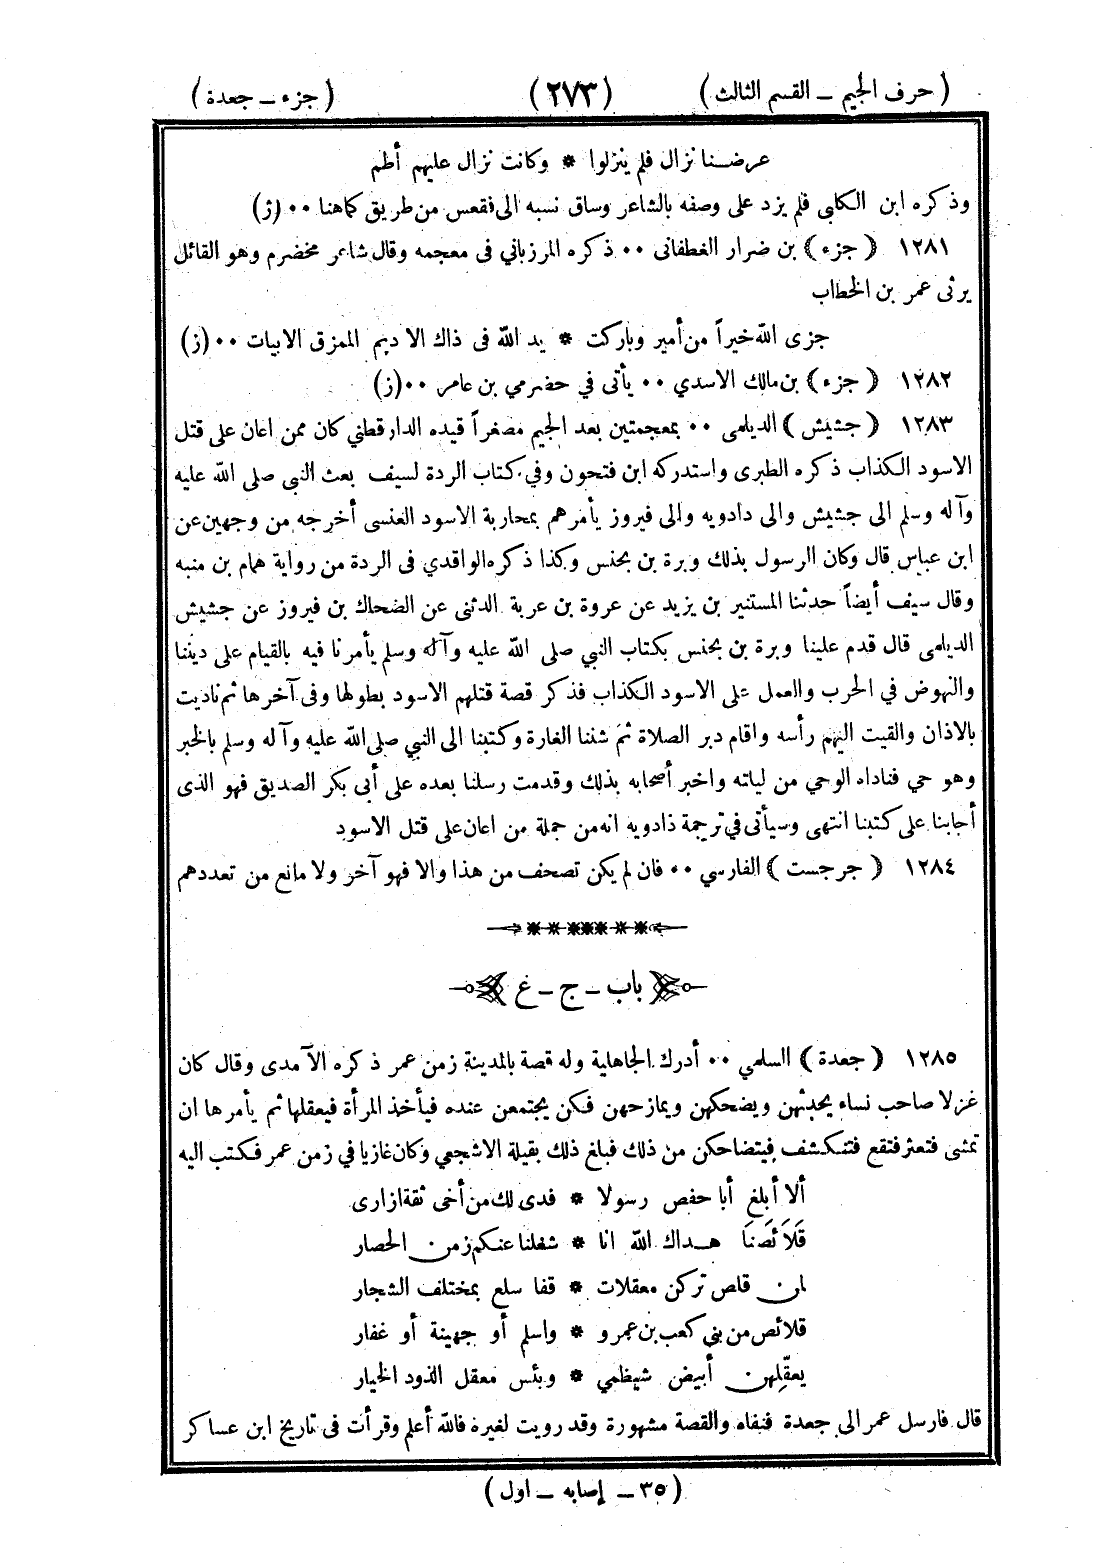 ( حرف الجيم – القسم الثالث ) (٢٧٣) ( جزء – جعدة )
عرضنا نزال فلم ينزلوا * وكانت نزال عليهم أطم
وذكره ابن الكلبي فلم يزد على وصفه بالشاعر وساق نسبه الى فقعس من طريق كما هنا ۰۰ (ز)
١٢٨١ ( جزء ) بن ضرار الغطفانى ۰۰ ذكره المرزباني فى معجمه وقال شاعر مخضرم وهو القائل
يرثى عمر بن الخطاب
جزى الله خيراً من أمير وباركت * يد الله فى ذاك الاديم الممزق الابيات ۰۰ (ز)
١٢٨٢ ( جزء ) بن مالك الاسدي ۰۰ يأتى في حضرمي بن عامر ۰۰ (ز)
١٢٨٣ ( جشيش ) الديلمى ۰۰ بمعجمتين بعد الجيم مصغراً قيده الدارقطني كان ممن اعان على قتل
الاسود الكذاب ذكره الطبرى واستدركه ابن فتحون وفي كتاب الردة لسيف بعث النبى صلى الله عليه
وآله وسلم الى جشيش والى دادويه والى فيروز يأمرهم بمحاربة الاسود العنسى أخرجه من وجهين عن
ابن عباس قال وكان الرسول بذلك وبرة بن يحنس وكذا ذكره الواقدي فى الردة من رواية همام بن منبه
وقال سيف أيضاً حدثنا المستنير بن يزيد عن عروة بن عربة الدثنى عن الضحاك بن فيروز عن جشيش
الديلمى قال قدم علينا وبرة بن يحنس بكتاب النبي صلى الله عليه وآله وسلم يأمرنا فيه بالقيام على ديننا
والنهوض في الحرب والعمل على الاسود الكذاب فذكر قصة قتلهم الاسود بطولها وفى آخرها ثم ناديت
بالاذان والقيت اليهم رأسه واقام دبر الصلاة ثم شننا الغارة وكتبنا الى النبي صلى الله عليه وآله وسلم بالخبر
وهو حي فناداه الوحي من ليلته واخبر أصحابه بذلك وقدمت رسلنا بعده على أبي بكر الصديق فهو الذى
أجابنا على كتبنا انتهى وسيأتى في ترجمة ذادويه انه من جملة من اعان على قتل الاسود
١٢٨٤ ( جرجست ) الفارسي ۰۰ فان لم يكن تصحف من هذا والا فهو آخر ولا مانع من تعددهم
باب – ج – غ
١٢٨٥ ( جعدة ) السلمي ۰۰ أدرك الجاهلية وله قصة بالمدينة زمن عمر ذكره الآمدى وقال كان
غزلا صاحب نساء يحدثهن ويضحكهن ويمازحهن فكن يجتمعن عنده فيأخذ المرأة فيعقلها ثم يأمرها ان
تمشى فتعثر فتقع فتتكشف فيتضاحكن من ذلك فبلغ ذلك بقيلة الاشجعي وكان غازيا في زمن عمر فكتب اليه
ألا أبلغ أبا حفص رسولا * فدى لك من أخى ثقة ازارى
قَلَائصَنَا هداك الله انا * شغلنا عنكم زمن الحصار
لمن قلص تركن معقلات * قفا سلع بمختلف الشجار
قلائص من بني كعب بن عمرو * واسلم أو جهينة أو غفار
يعقّلهن أبيض شيظمي * وبئس معقل الذود الخيار
قال فارسل عمر الى جعدة فنفاه والقصة مشهورة وقد رويت لغيره فالله أعلم وقرأت فى تاريخ ابن عساكر
( ٣٥ – إصابه – اول )